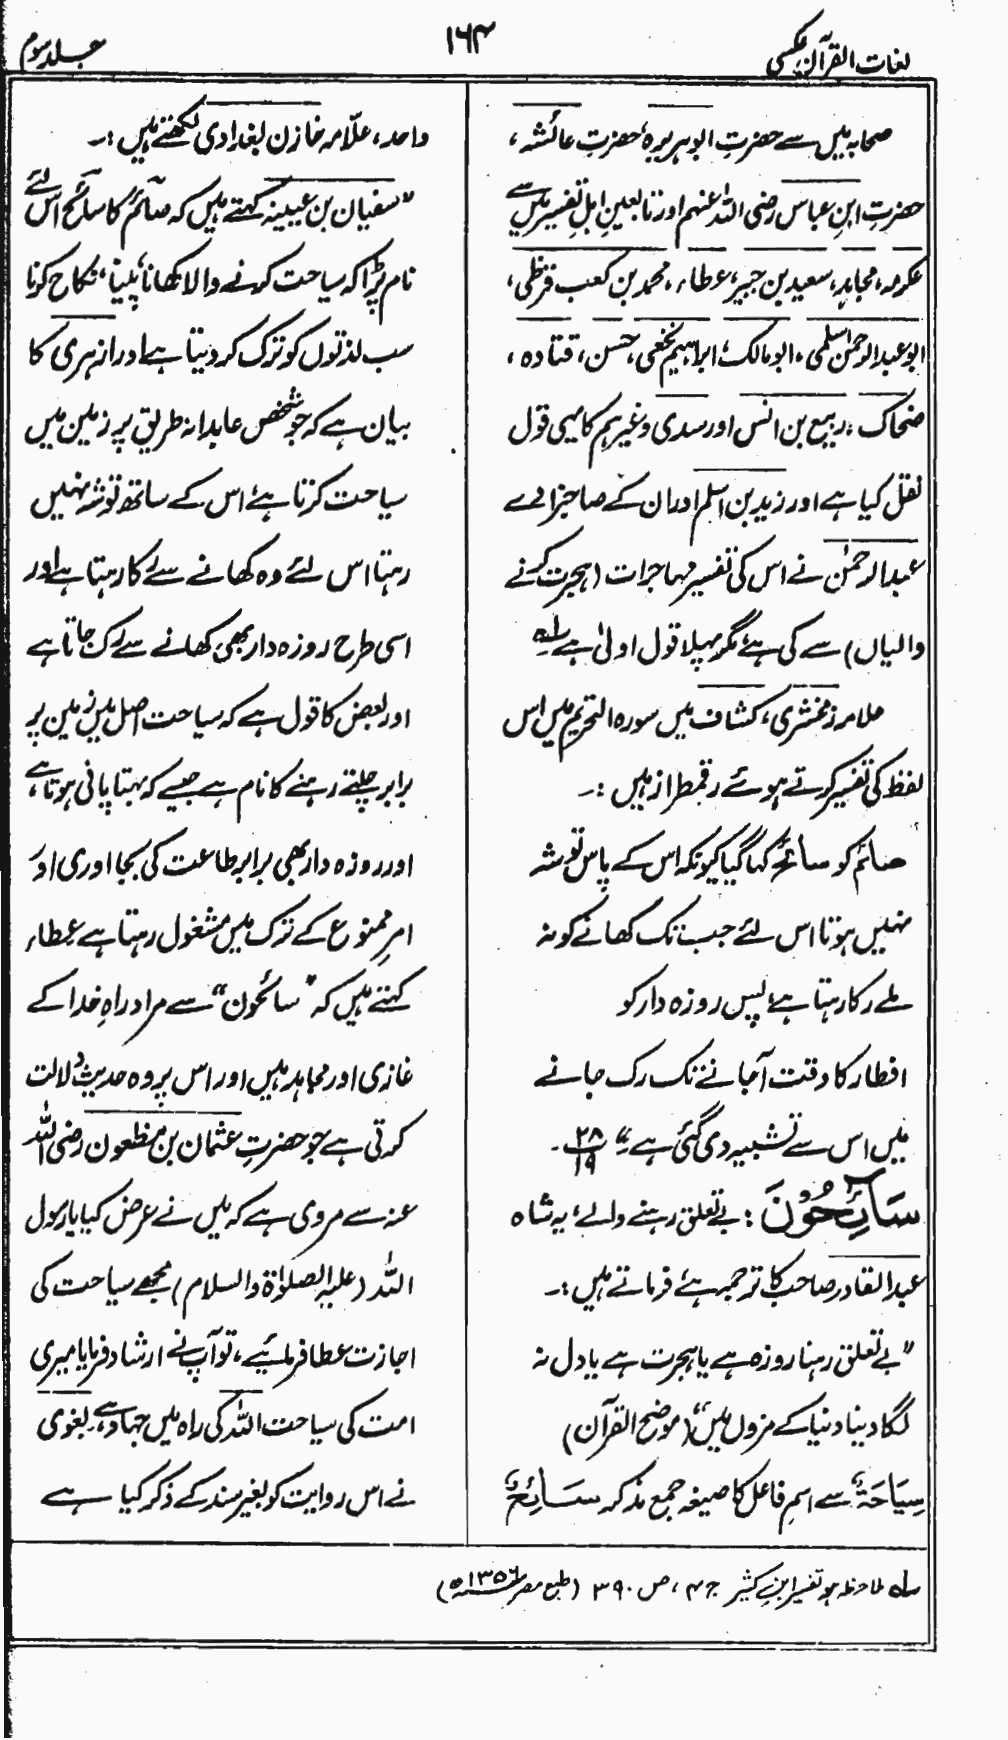 لغات القرآن عکسی
۱۶۴
جلد سوم
صحابہ میں سے حضرتِ ابوہریرہ، حضرتِ عائشہ،
حضرتِ ابنِ عباس رضی اللہ عنہم اور تابعین اہلِ تفسیر میں سے
عکرمہ، مجاہد، سعید بن جبیر، عطاء، محمد بن کعب قرظی،
ابو عبدالرحمٰن سلمی، ابو مالک، ابراہیم نخعی، حسن، قتادہ،
ضحاک، ربیع بن انس اور سدی وغیرہم کا یہی قول
نقل کیا ہے اور زید بن اسلم اور ان کے صاحبزادے
عبدالرحمٰن نے اس کی تفسیر مہاجرات (ہجرت کرنے
والیاں) سے کی ہے، مگر پہلا قول اولیٰ ہے لہ
علامہ زمخشری، کشاف میں سورہ التحریم میں اس
لفظ کی تفسیر کرتے ہوئے رقمطراز ہیں :۔
صائم کو سائح کہا گیا کیونکہ اس کے پاس توشہ
نہیں ہوتا اس لئے جب تک کھانے کو نہ
ملے رکا رہتا ہے، پس روزہ دار کو
افطار کا وقت آجانے تک رک جانے
میں اس سے تشبیہ دی گئی ہے ”۔ ۲۸/۱۹ ۔
سَائِحُوْنَ : بے تعلق رہنے والے، یہ شاہ
عبدالقادر صاحب کا ترجمہ ہے، فرماتے ہیں :۔
”بے تعلق رہنا روزہ ہے یا ہجرت ہے یا دل نہ
لگا دینا دنیا کے مزوں میں“ (موضح القرآن)
سِیَاحَۃٌ سے اسمِ فاعل کا صیغہ جمع مذکر سَائِحٌ
واحد، علّامہ خازن بغدادی لکھتے ہیں :۔
”سفیان بن عیینہ کہتے ہیں کہ صائم کا سائح اس لئے
نام پڑا کہ سیاحت کرنے والا کھانا، پینا، نکاح کرنا
سب لذتوں کو ترک کر دیتا ہے اور ازہری کا
بیان ہے کہ جو شخص عابدانہ طریق پر زمین میں
سیاحت کرتا ہے، اس کے ساتھ توشہ نہیں
رہتا اس لئے وہ کھانے سے رکا رہتا ہے، اور
اسی طرح روزہ دار بھی کھانے سے رک جاتا ہے
اور بعض کا قول ہے کہ سیاحت اصل میں زمین پر
برابر چلتے رہنے کا نام ہے جیسے کہ بہتا پانی ہوتا ہے،
اور روزہ دار بھی برابر طاعت کی بجا آوری اور
امرِ ممنوع کے ترک میں مشغول رہتا ہے عطاء
کہتے ہیں کہ ”سائحون“ سے مراد راہِ خدا کے
غازی اور مجاہد ہیں اور اس پر وہ حدیث دلالت
کرتی ہے جو حضرتِ عثمان بن مظعون رضی اللہ
عنہ سے مروی ہے کہ میں نے عرض کیا یا رسول
اللہ (علیہ الصلوٰۃ والسلام) مجھے سیاحت کی
اجازت عطا فرمائیے، تو آپ نے ارشاد فرمایا میری
امت کی سیاحت اللہ کی راہ میں جہاد ہے، بغوی
نے اس روایت کو بغیر سند کے ذکر کیا ہے
لہ ملاحظہ ہو تفسیر ابن کثیر ج ۴، ص ۳۹۰ (طبع مصر ۱۳۵۶ھ)